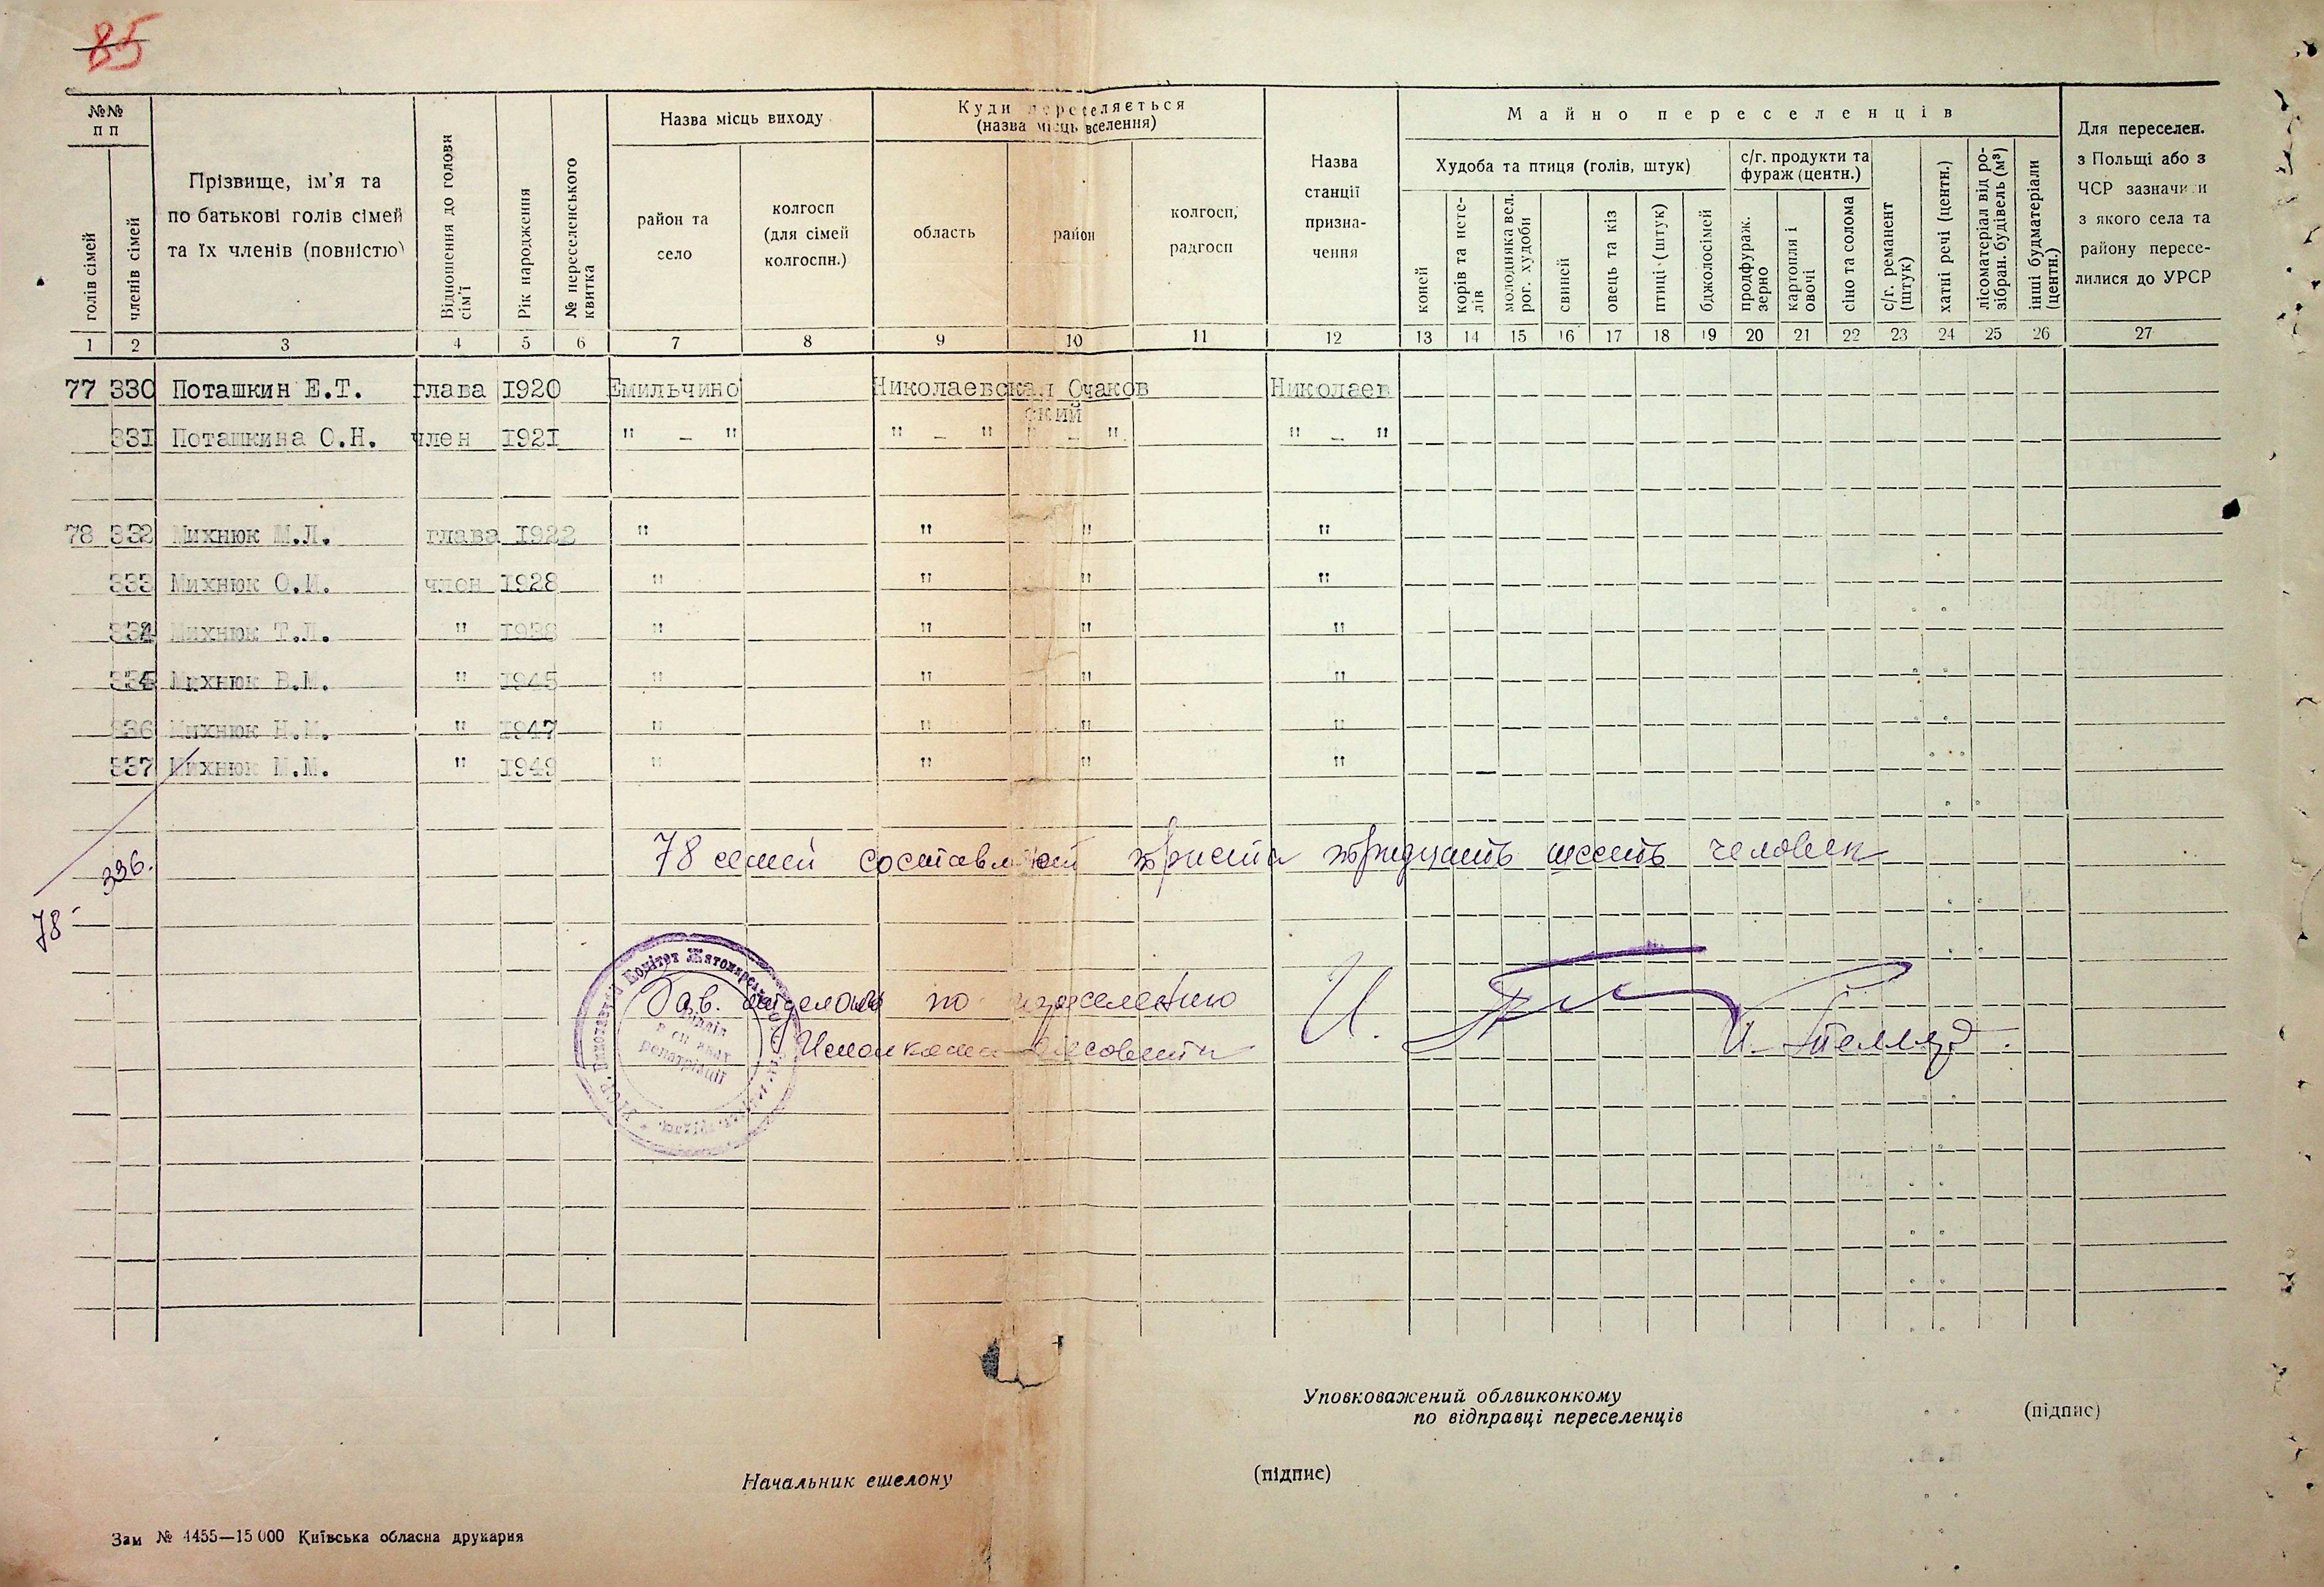 85
№№ п п
голів сімей
членів сімей
Прізвище, ім'я та по батькові голів сімей та їх членів (повністю)
Відношення до голови сім'ї
Рік народження
№ переселенського квитка
Назва місць виходу
район та село
колгосп (для сімей колгоспн.)
Куди переселяється (назва місць вселення)
область
район
колгосп, радгосп
Назва станції призна- чення
Майно переселенців
Худоба та птиця (голів, штук)
коней
корів та нете- лів
молодняка вел. рог. худоби
свиней
овець та кіз
птиці (штук)
бджолосімей
с/г. продукти та фураж (центн.)
продфураж. зерно
картопля і овочі
сіно та солома
с/г. реманент (штук)
хатні речі (центн.)
лісоматеріал від ро- зібран. будівель (м³)
інші будматеріали (центн.)
Для переселен. з Польщі або з ЧСР зазначити з якого села та району пересе- лилися до УРСР
1 2 3 4 5 6 7 8 9 10 11 12 13 14 15 16 17 18 19 20 21 22 23 24 25 26 27
77 330 Поташкин Е.Т. глава 1920 Емильчино Николаевская Очаков Николаев
ский
331 Поташкина О.Н. член 1921 " – " " – " " – " " – "
78 332 Михнюк М.Л. глава 1922 " " " "
333 Михнюк О.И. член 1928 " " " "
334 Михнюк Т.Л. " 1936 " " " "
335 Михнюк В.М. " 1945 " " " "
336 Михнюк Н.М. " 1947 " " " "
337 Михнюк М.М. " 1949 " " " "
78 семей составляют триста тридцать шесть человек
336.
78
Зав. отделом по переселению И.
Исполкома Облсовета
Комітет Житомирської
репатріації
Уповноважений облвиконкому
по відправці переселенців (підпис)
Начальник ешелону (підпис)
Зам № 4455—15 000 Київська обласна друкарня